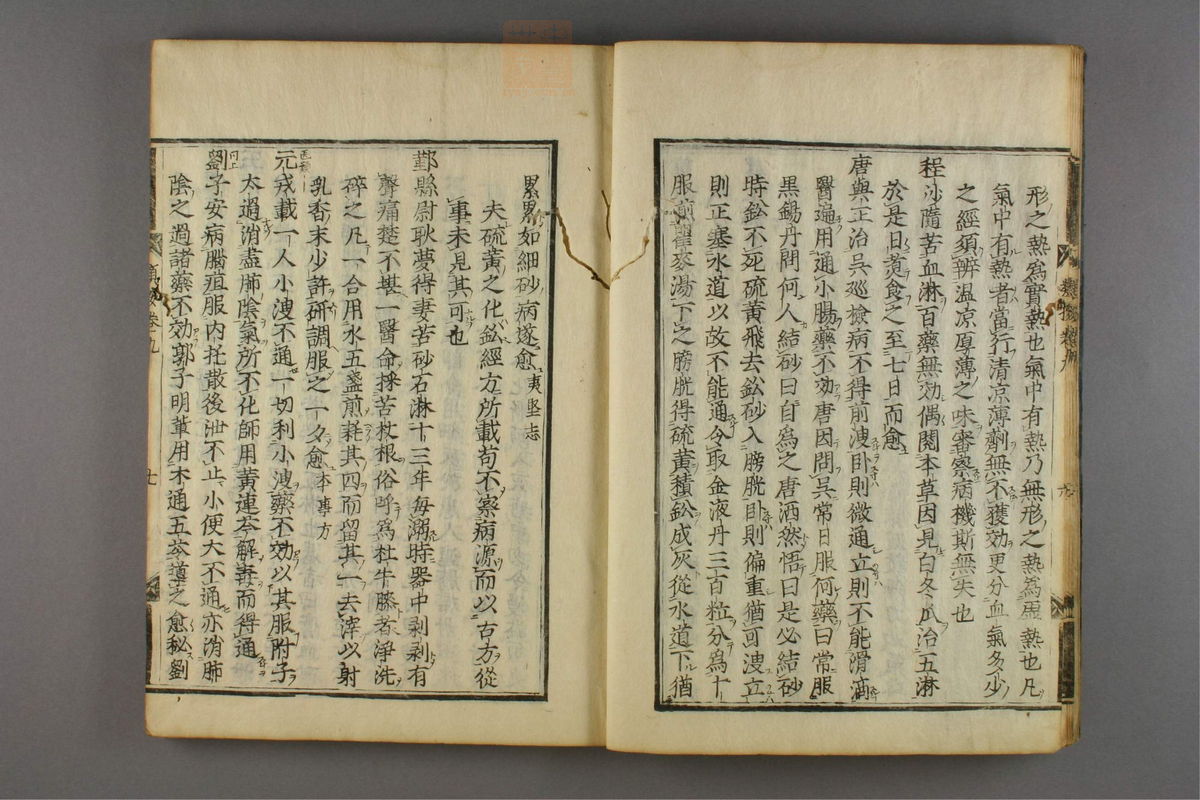 形之熱爲實熱也氣中有熱乃無形之熱為虛熱也凡
氣中有熱者當行清凉薄劑無不獲効更分血氣多少
之經須辨温凉厚薄之味審察病機斯無失也
程沙隨苦血淋百藥無効偶閱本草因見白冬瓜治五淋
於是日煑食之至七日而愈
唐與正治吳巡檢病不得前溲卧則微通立則不能滑滴
醫遍用通小腸藥不効唐因問吳常日服何藥曰常服
黒錫丹問何人結砂曰自爲之唐洒然悟曰是必結砂
時鈆不死硫黃飛去鈆砂入膀胱卧則偏重猶可溲立
則正塞水道以故不能通令取金液丹三百粒分爲十
服煎瞿麥湯下之膀胱得硫黃積鈆成灰從水道下猶
累累如細砂病遂愈夷堅志
夫硫黃之化鈆經方所載苟不察病源而以古方從
事未見其可也
鄞縣尉耿夢得妻苦砂石淋十三年每溺時器中剥剥有
聲痛楚不堪一醫命採苦杖根俗呼爲杜牛膝者淨洗
碎之凡一合用水五盞煎耗其四而留其一去滓以射
乳香末少許研調服之一夕愈本事方
元戎載一人小溲不通一切利小溲藥不効以其服附子
太過消盡肺陰氣所不化師用黃連芩解毒而得通
劉子安病腦疽服内托散後泄不止小便大不通亦消肺
陰之過諸藥不効郭子明軰用木通五苓導之愈秘劉
卷十九